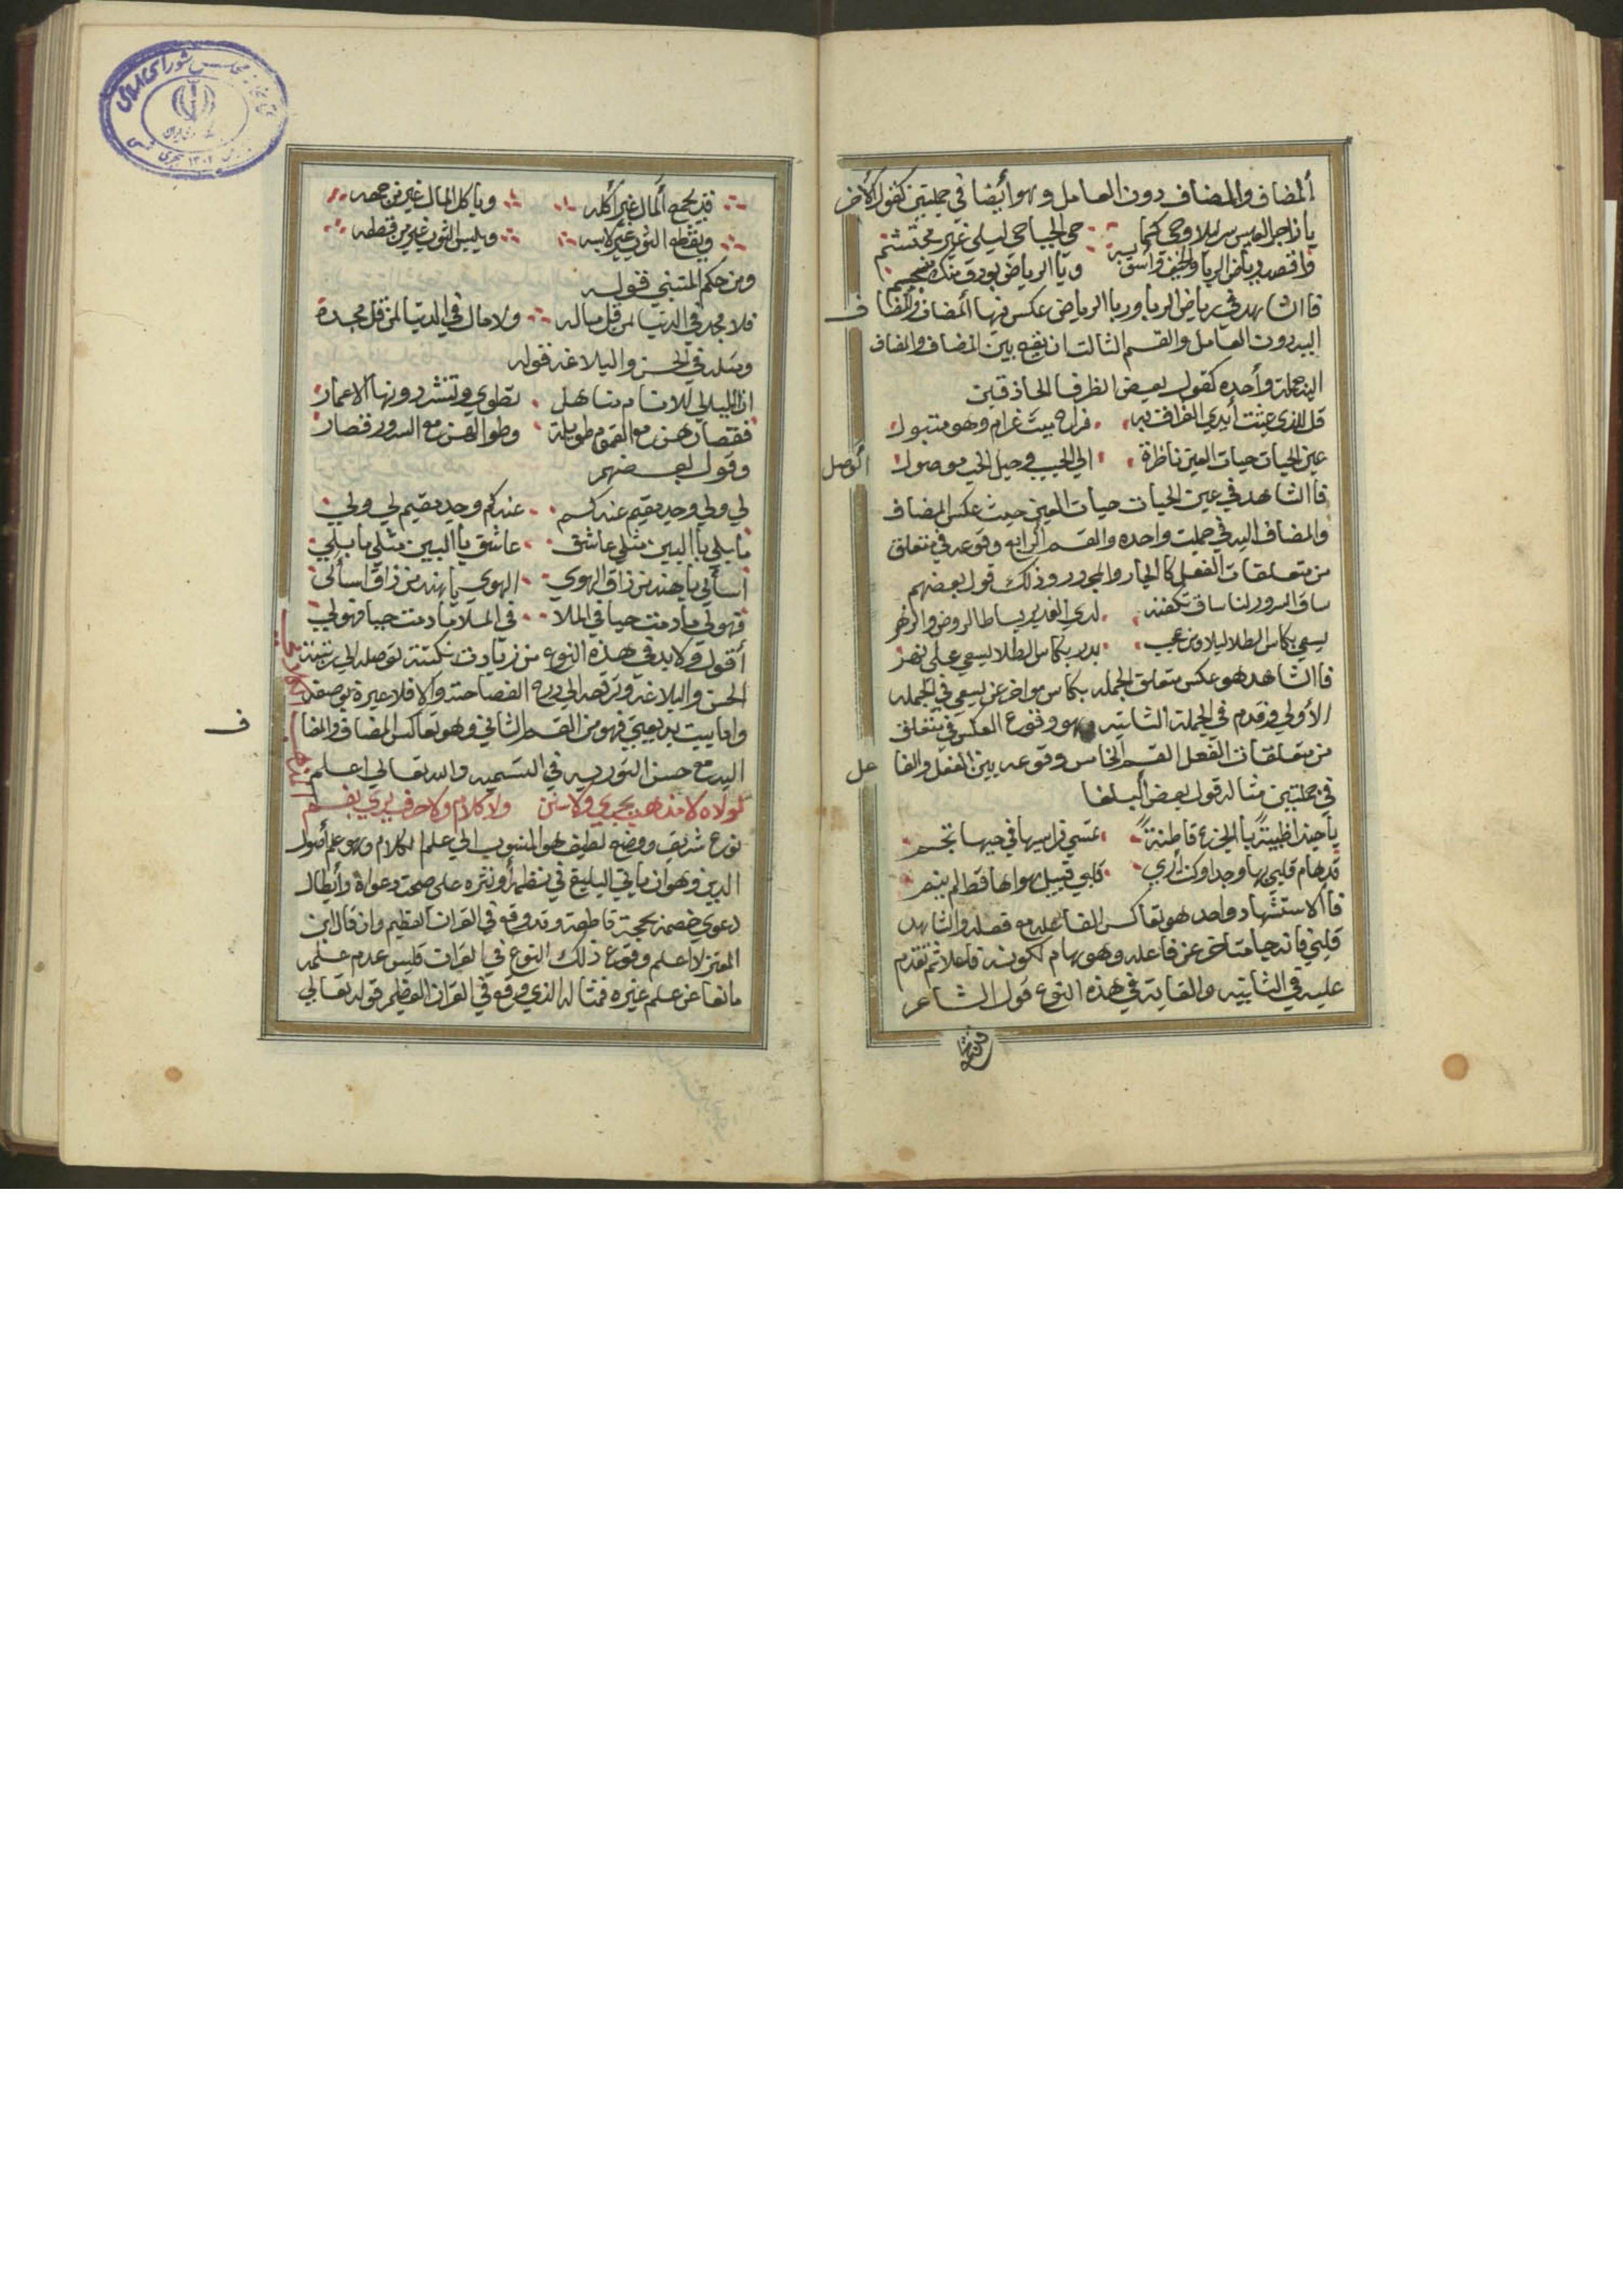 المضاف والمضاف دون العامل وهو أيضا في جملتين كقول الاخر
يا زاجر العيس سر ليلا وحي كما حي الحيا حي ليلي غير محتشم
واقصد رياض الربا والخيف واسق به وربا الرياض
فاالشاهد في رياض الربا وربا الرياض عكس فيها المضاف والمضاف
اليه دون العامل والقسم الثالث ان يقع بين المضاف والمضاف
اليه جملة واحده كقول بعض الظرفا الحاذقين
قل للذي عبثت أيدي الفراق به فراح بيت غرام وهو متبول
عين الحيات حيات العين ناظرة الي الحبيب وحبل الحب موصول
الوصل
فاالشاهد في عين الحيات حيات العين حيث عكس المضاف
والمضاف اليه في جملت واحده والقسم الرابع وقوعه في متعلق
من متعلقات الفعل كا الجار والمجرور وذلك قول بعضهم
ساق السرور لنا ساق لدي الغدير بساطا لروض والزهر
يسعي بكاس الطلا ليلا ومن عجب بدر بكاس الطلا يسعي علي نهر
فاالشاهد هو عكس متعلق الجمله بكاس مواخر عن يسعي في الجمله
الأولي وقدم في الجملة الثانيه وهو وقوع العكس في متعلق
من متعلقات الفعل القسم الخامس وقوعه بين الفعل والفاعل
في جملتين مثاله قول بعض البلغا
يا حبذا ظبيةً باالجزع قاطنةً
قد هام قلبي بها وجدا وكن أري قلبي قبيل هواها قط لم يهم
فاالاستشهاد واحد هو تعاكس الفاعل مع فعله والشاهد
قلبي فانه جا متاخر عن فاعله وهو هام لكونه فاعلا ثم تقدم
عليه في الثانيه والغاية في هذه النوع قول الشاعر
قد يجمع ألمال غير أكله وياكل المال غير من جمعه
ويقطع الثوب غير لابسه ويلبس الثوب غير من قطعه
ومن حكم المتنبي قوله
فلا مجد في الدنيا لمن قل ماله ولا مال في الدنيا لمن قل مجده
ومثله في الحسن والبلاغه قوله
ان الليالي للانام مناهل تطوي وتنشر دونها الاعمار
فقصارهن مع الهموم طويلة وطوالهن مع السرور قصار
وقول بعضهم
لي ولي وجد مقيم عندكم عندكم وجد مقيم لي ولي
ما بلي باالبين مثلي عاشق عاشق باالبين مثلي ما بلي
اسألي يا هند من ذاق الهوي الهوي يا هند من ذاق اسألي
فهو لي ما دمت حيا في الملا في الملا ما دمت حيا فهو لي
أقول ولا بد في هذه النوع من زيادت نكتة توصله الي رتبة
الحسن والبلاغه وترقعه الي درج الفصاحته والا فلا عبرة بوصفه
واما بيت بديعيتي فهو من القسم الثاني وهو تعاكس المضاف والمضاف
اليه مع حسن التوريه في التسميه والله تعالي اعلم
المذهب الكلامي
لولاه لا مذهب يجري ولا سنن ولا كلام ولا حرف يري بفم
نوع شريف ووضع لطيف هو المنسوب الي علم الكلام وهو علم أصول
الدين وهو ان ياتي البليغ في نظمه أو نثره علي صحت دعواه وأبطال
دعوي خصمه بحجة قاطعة وقد وقع في القران العظيم وان قال ابن
المعتز لا اعلم وقوع ذلك النوع في القران فليس عدم علمه
مانعا عن علم غيره فمثاله الذي وقع في القران العظيم قوله تعالي